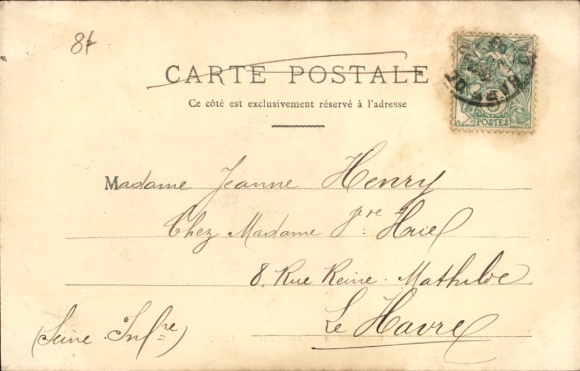 8f
CARTE POSTALE
Ce côté est exclusivement réservé à l'adresse
POSTES
Madame Jeanne Henry
Chez Madame Jre Huel
8. Rue Reine Mathilde
Le Havre
(Seine Infre)